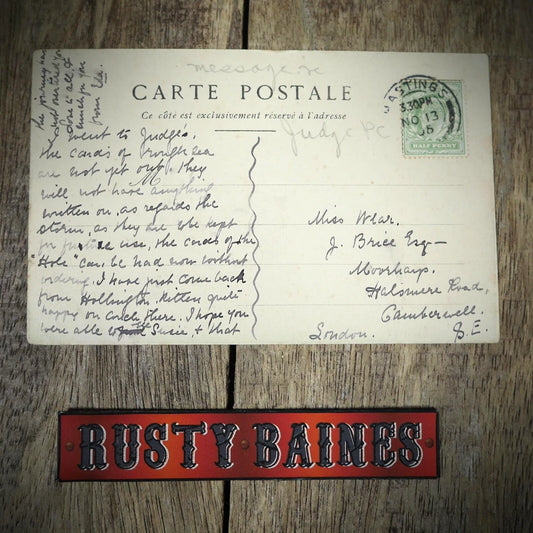 message on
CARTE POSTALE
Ce côté est exclusivement réservé à l'adresse
Judge PC
HASTINGS
3.30PM
NO 13
05
HALF PENNY
went to Judge's.
the cards of rough sea
are not yet out. They
will not have anything
written on, as regards the
storm, as they are to be kept
for future use, the cards of the
"Hole" can be had now without
ordering. I have just come back
from Hollington. Kitten quite
happy on coach there. I hope you
were able to Susie, & that
the journey has
not you
love to all &
much for you
from
Miss Wear.
J. Brice Esq-
Moorhays.
Halsmere Road,
Camberwell.
London. S.E.
RUSTY BAINES